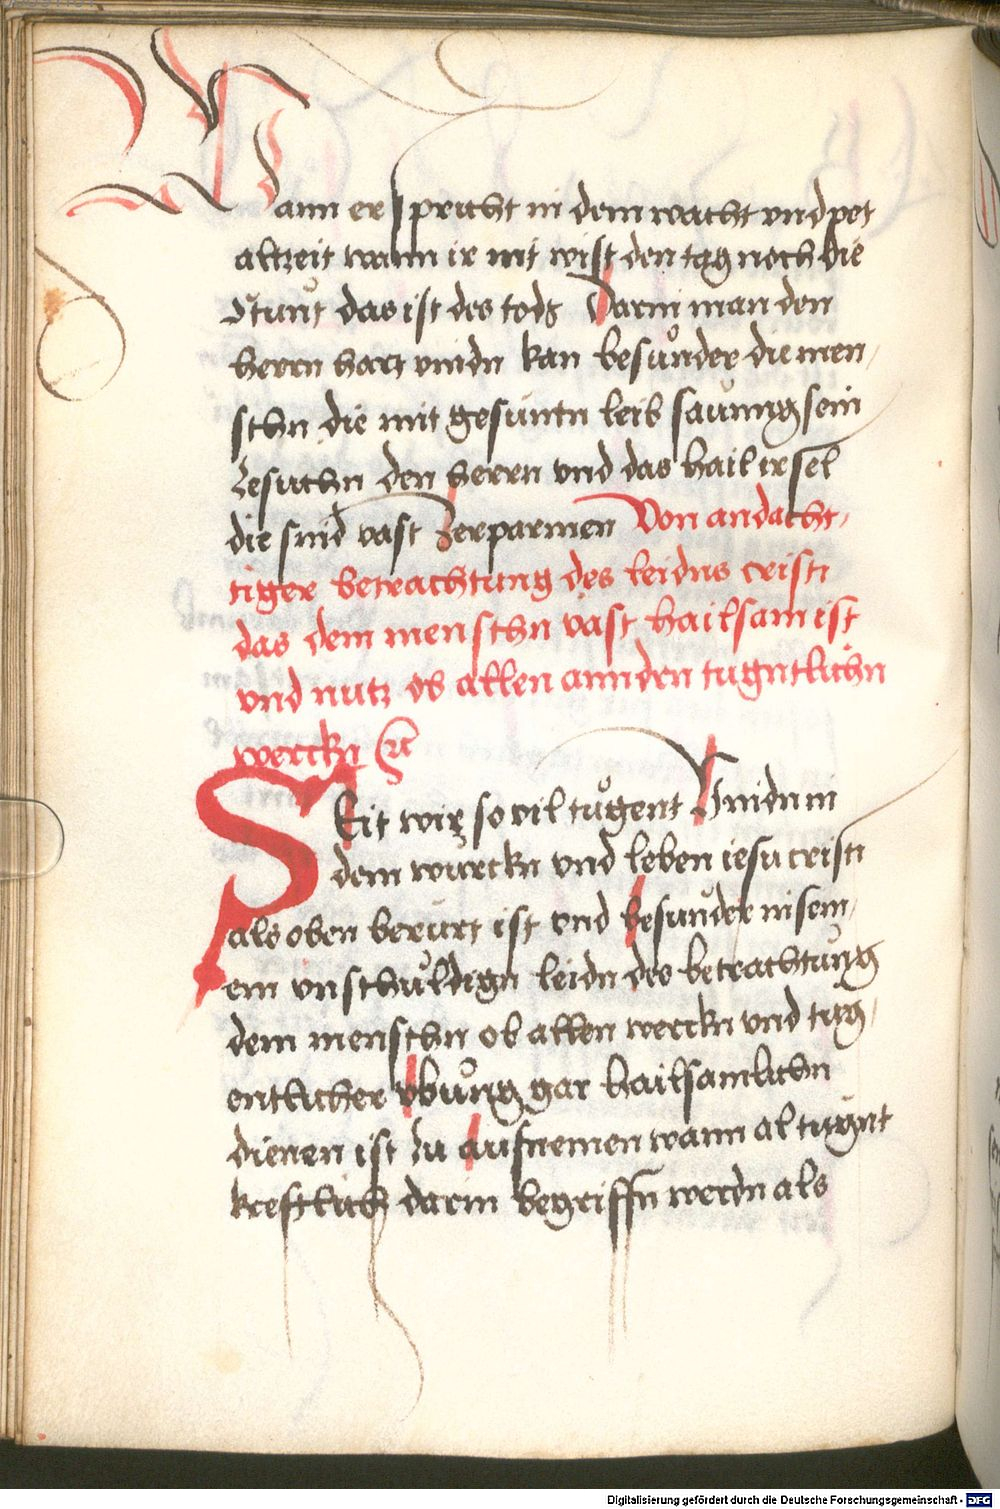 Wann er spricht in dem wacht vnd pet
altzeit wann ir nit wist den tag noch die
stunt das ist des tods Darin man den
herrn hart vindn kan besunder die men
schn die mit gesuntn leib saumig sein
zesuchn den herrn vnd das hail ir sel
die sind vast zerparmen Von andacht
tiger betrachtung des leidns cristi
das dem menschn vast hailsam ist
vnd nutz ob allen anndern tugntlichn
werckn etc
Seit wir so vil tugent vindn in
dem wurckn vnd leben iesu cristi
als oben berurt ist vnd besunder in sein
em vnschuldign leidn des betrachtung
dem menschn ob allen werckn vnd tug
entlicher vbung gar hailsamlichn
dienen ist zu aufnemen wann al tugnt
kreftlich darin begriffn werdn als
Digitalisierung gefördert durch die Deutsche Forschungsgemeinschaft - DFG